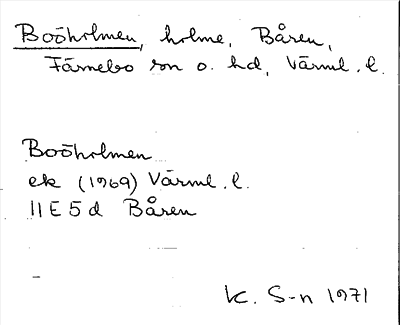 Boöholmen, holme, Båren,
Färnebo sn o. hd, Värml. l.
Boöholmen
ek (1969) Värml. l.
11E5d Båren
K. S-n 1971